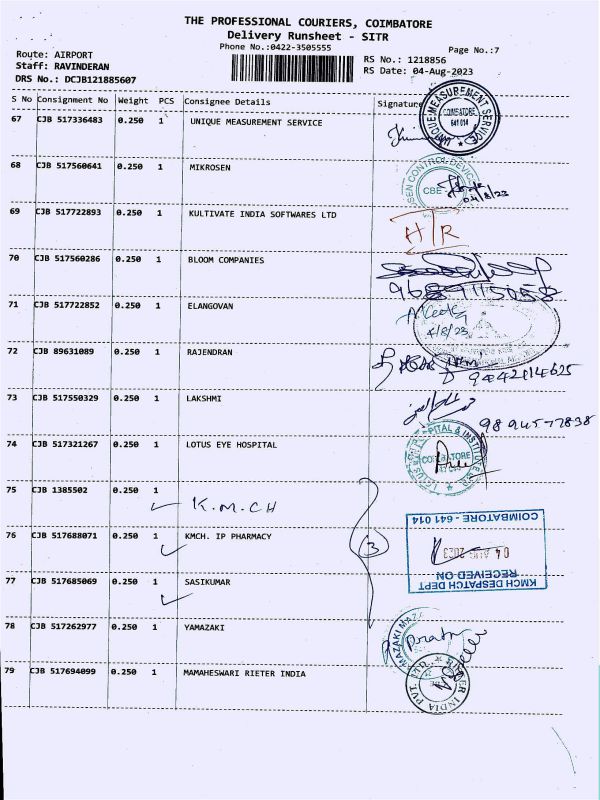 THE PROFESSIONAL COURIERS, COIMBATORE
Delivery Runsheet - SITR
Phone No.:0422-3505555
Page No.:7
Route: AIRPORT
Staff: RAVINDERAN
DRS No.: DCJB121885607
RS No.: 1218856
RS Date: 04-Aug-2023
S No Consignment No Weight PCS Consignee Details Signature
67 CJB 517336483 0.250 1 UNIQUE MEASUREMENT SERVICE
UNIQUE MEASUREMENT SERVICE
COIMBATORE
641 014
68 CJB 517560641 0.250 1 MIKROSEN
SEN CONTROL DEVICE
CBE
04/8/23
69 CJB 517722893 0.250 1 KULTIVATE INDIA SOFTWARES LTD
H/R
70 CJB 517560286 0.250 1 BLOOM COMPANIES
71 CJB 517722852 0.250 1 ELANGOVAN
4/8/23
72 CJB 89631089 0.250 1 RAJENDRAN
9442114625
73 CJB 517550329 0.250 1 LAKSHMI
9894577838
74 CJB 517321267 0.250 1 LOTUS EYE HOSPITAL
75 CJB 1385502 0.250 1
K.M.CH
76 CJB 517688071 0.250 1 KMCH. IP PHARMACY
3
KMCH DESPATCH DEPT
RECEIVED ON
04 AUG 2023
COIMBATORE - 641 014
77 CJB 517685069 0.250 1 SASIKUMAR
78 CJB 517262977 0.250 1 YAMAZAKI
79 CJB 517694099 0.250 1 MAMAHESWARI RIETER INDIA